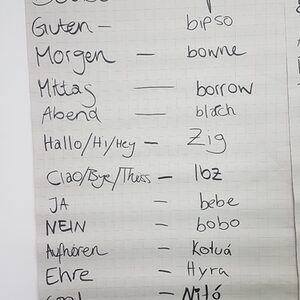 Guten - bipso
Morgen - bowne
Mittag - borrow
Abend - blach
Hallo/Hi/Hey - Zig
Ciao/Bye/Thüss - lbz
JA - bebe
NEIN - bobo
Aufhören - Kotuá
Ehre - Hyra
- Nitó